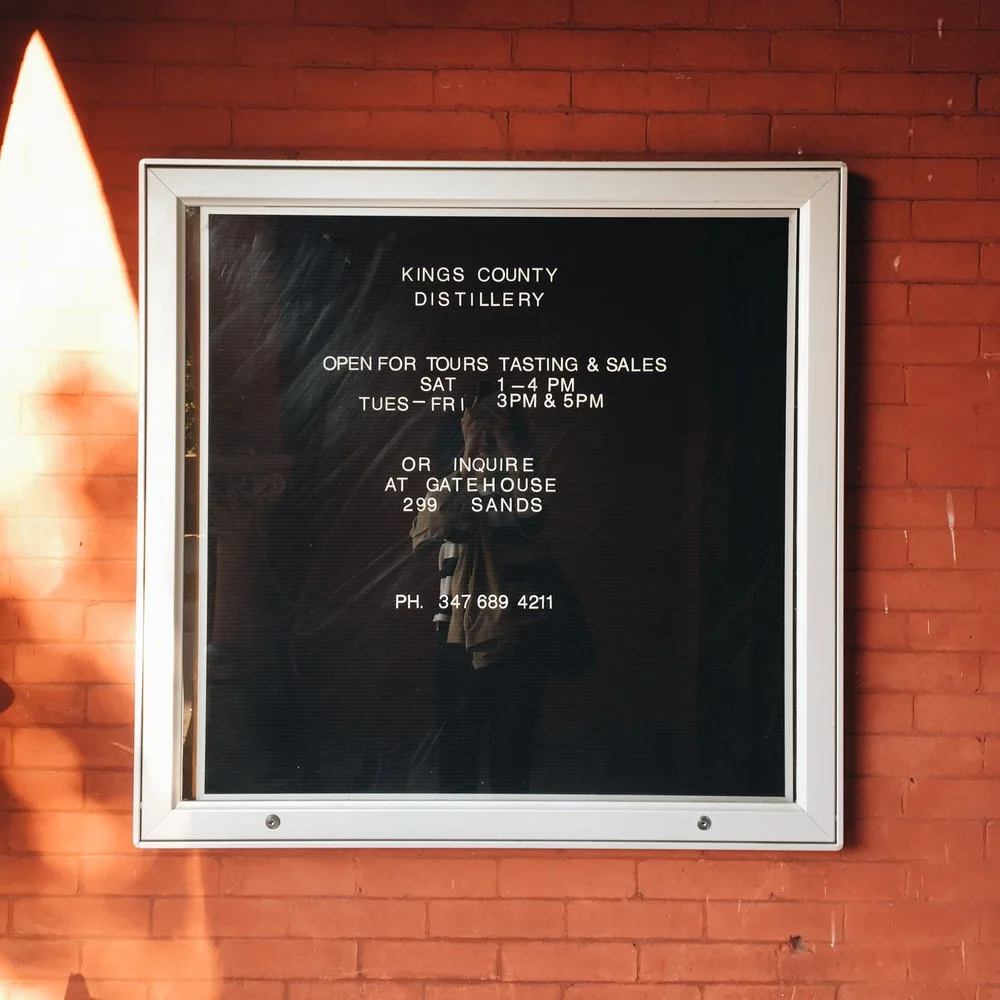 KINGS COUNTY
DISTILLERY
OPEN FOR TOURS TASTING & SALES
SAT 1–4 PM
TUES–FRI 3PM & 5PM
OR INQUIRE
AT GATEHOUSE
299 SANDS
PH. 347 689 4211